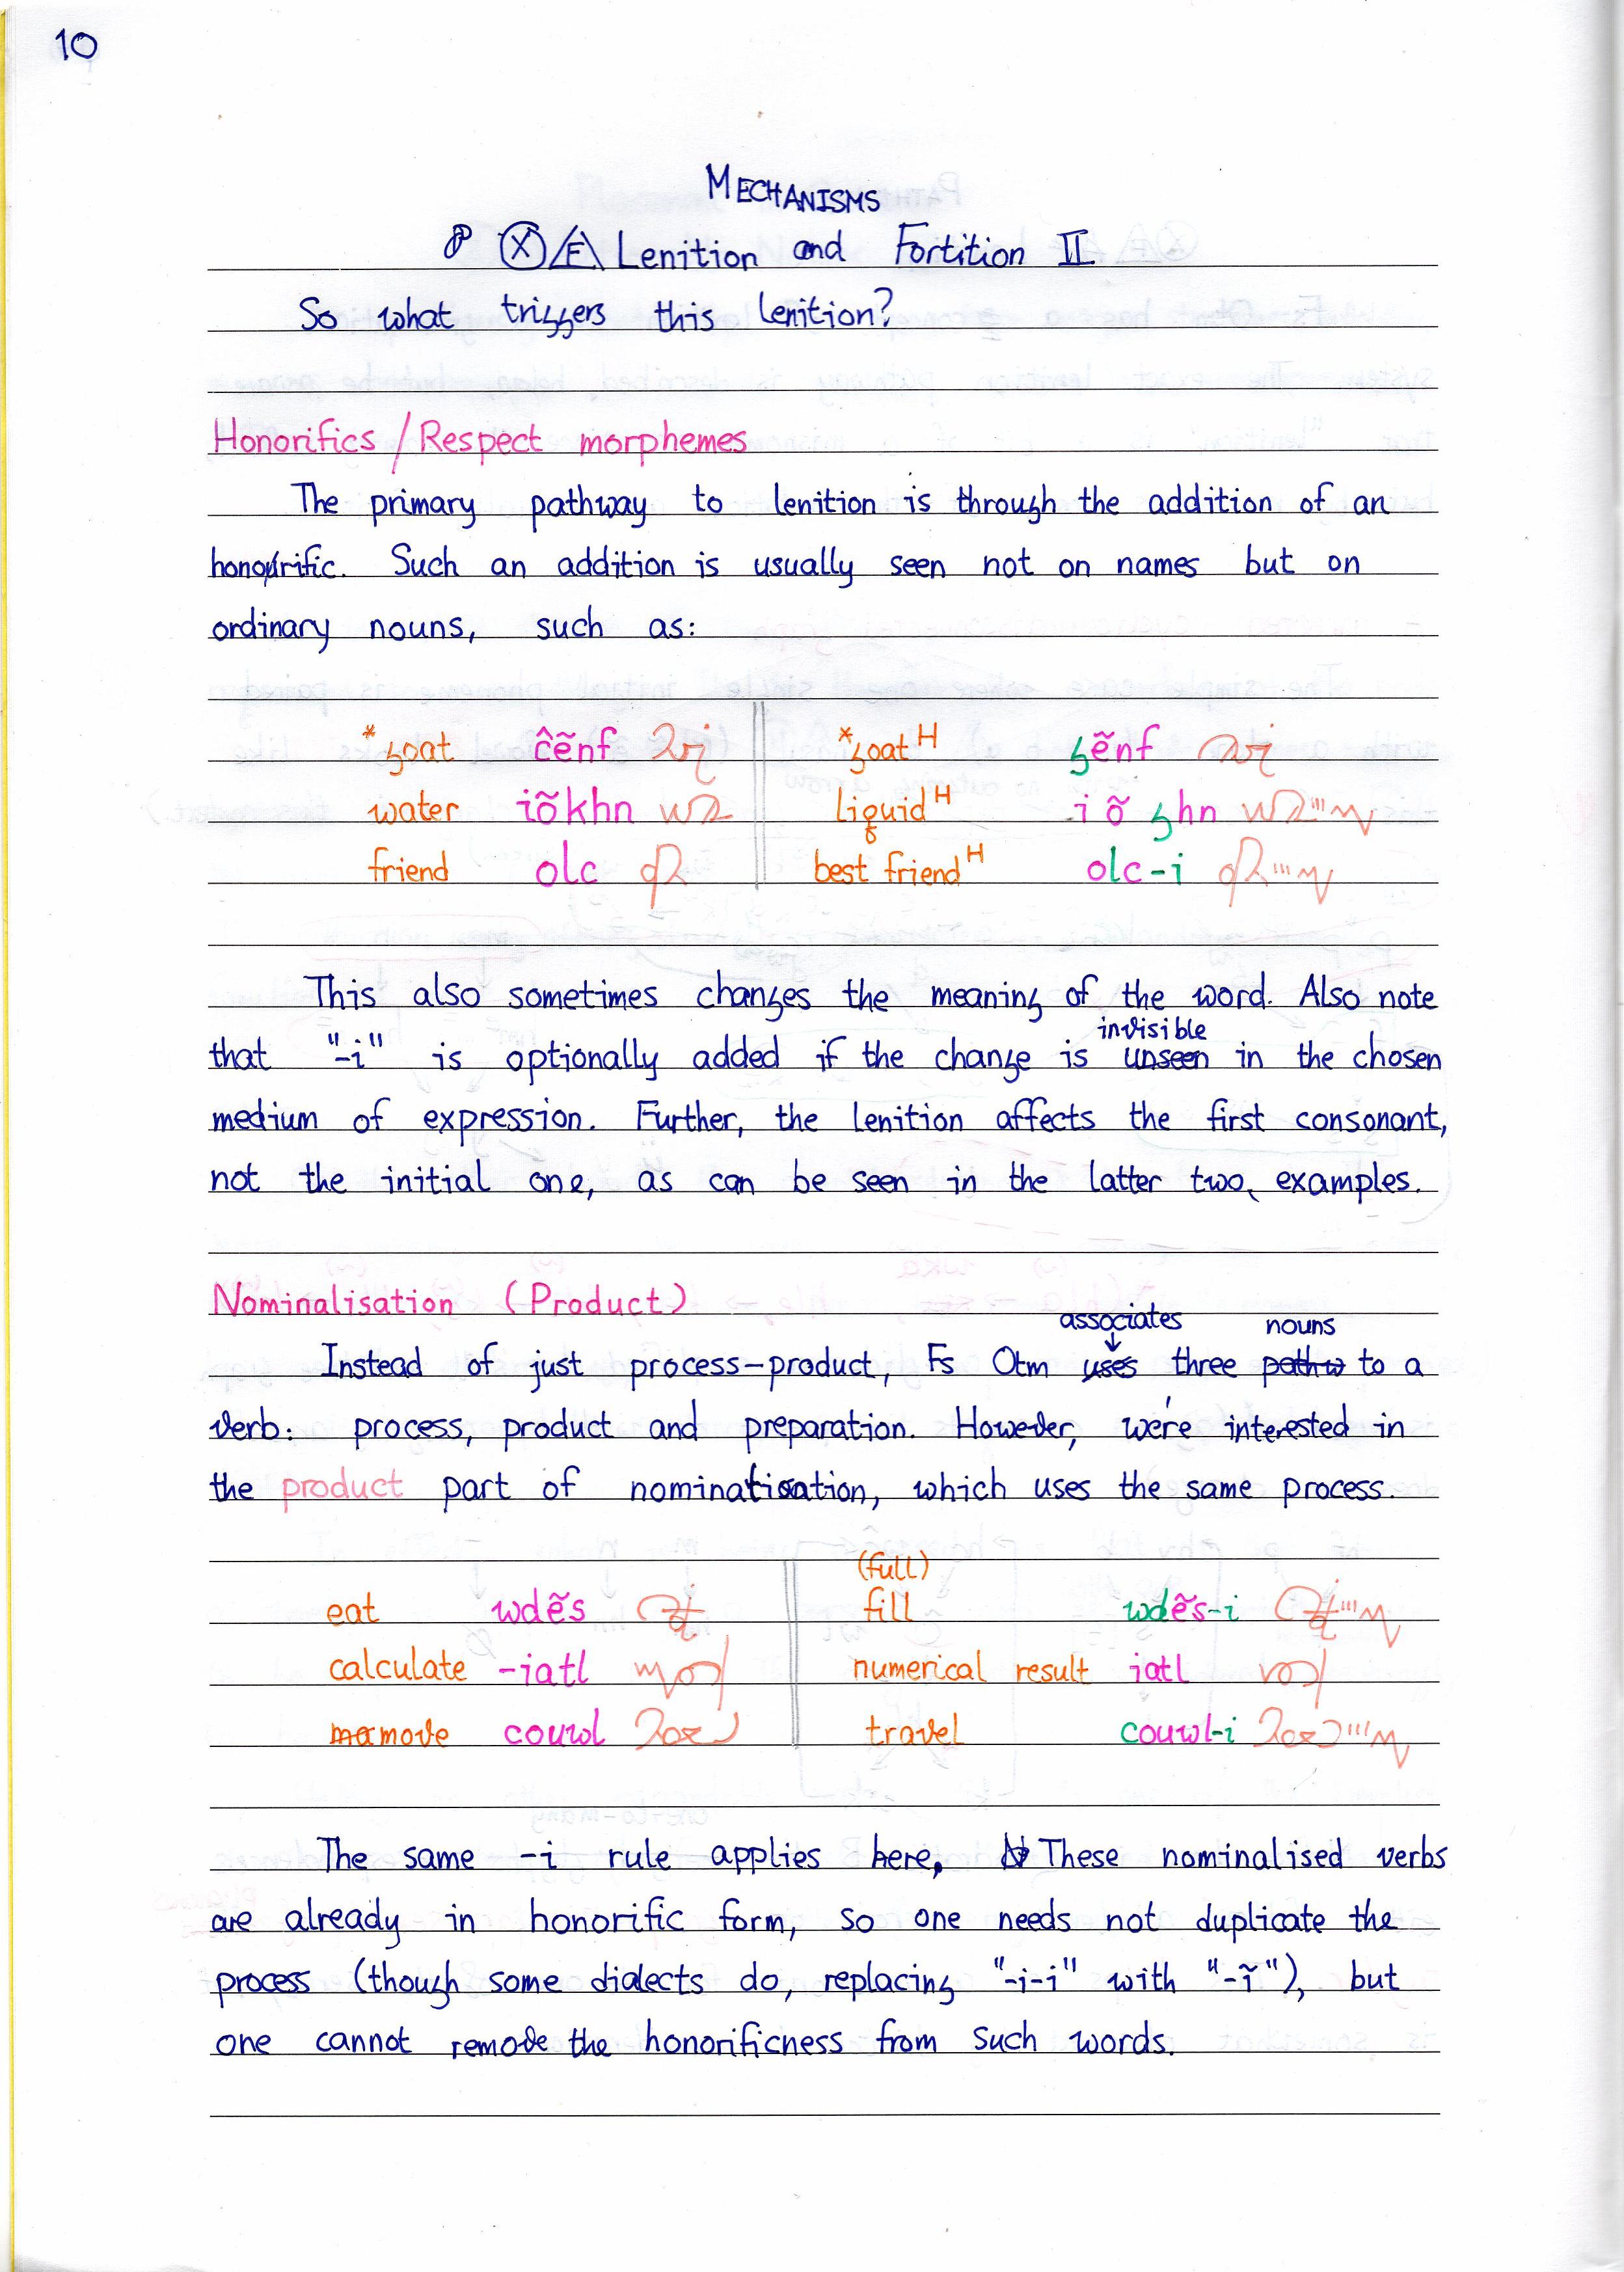 10
MECHANISMS
X F Lenition and Fortition II
So what triggers this lenition?
Honorifics / Respect morphemes
The primary pathway to lenition is through the addition of an
honorific. Such an addition is usually seen not on names but on
ordinary nouns, such as:
*goat ĉẽnf *goatᴴ gẽnf
water iõkhn liquidᴴ iõghn
friend olc best friendᴴ olc-i
This also sometimes changes the meaning of the word. Also note
invisible
that "-i" is optionally added if the change is unseen in the chosen
medium of expression. Further, the lenition affects the first consonant,
not the initial one, as can be seen in the latter two examples.
Nominalisation (Product)
associates nouns
Instead of just process-product, Fs Otm uses three pathw to a
verb: process, product and preparation. However, we're interested in
the product part of nominalisation, which uses the same process.
(full)
eat wdẽs fill wdẽs-i
calculate -iatl numerical result iatl
ma move couwl travel couwl-i
The same -i rule applies here, These nominalised verbs
are already in honorific form, so one needs not duplicate the
process (though some dialects do, replacing "-i-i" with "-ĩ"), but
one cannot remove the honorificness from such words.